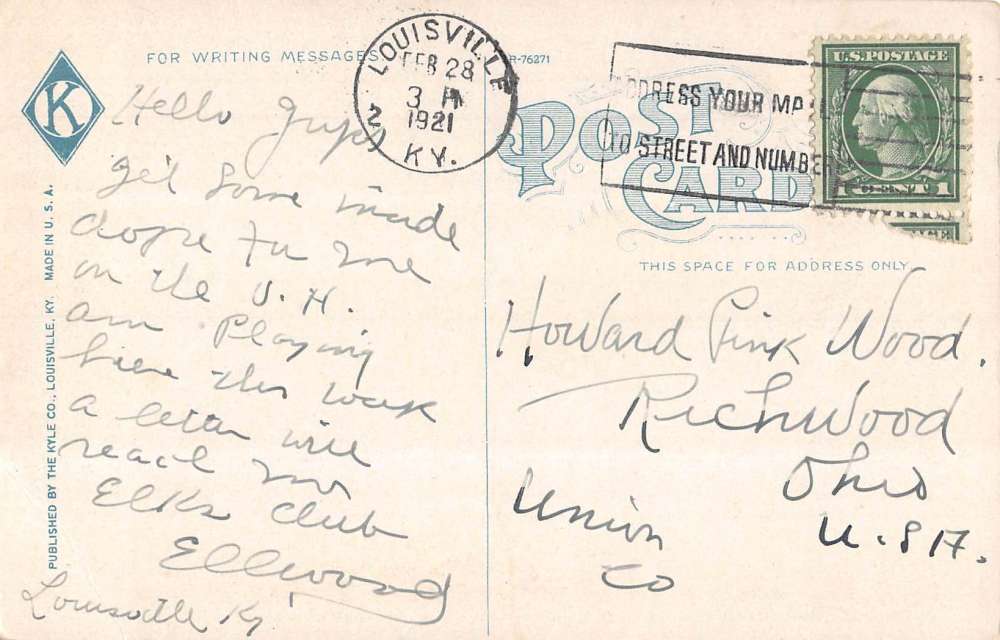 FOR WRITING MESSAGES
R-76271
LOUISVILLE
FEB 28
3 P
1921
2
KY.
DRESS YOUR MA
TO STREET AND NUMBER
U.S. POSTAGE
1 CENT 1
POST CARD
THIS SPACE FOR ADDRESS ONLY
K
PUBLISHED BY THE KYLE CO., LOUISVILLE, KY. MADE IN U. S. A.
Hello
Get some inside
dope for me
on the U. H.
am Playing
here this week
a letter will
reach me
Elks Club
Ellwood
Louisville Ky
Howard Pink Wood.
Richwood
Ohio
Union
Co
U. S A.